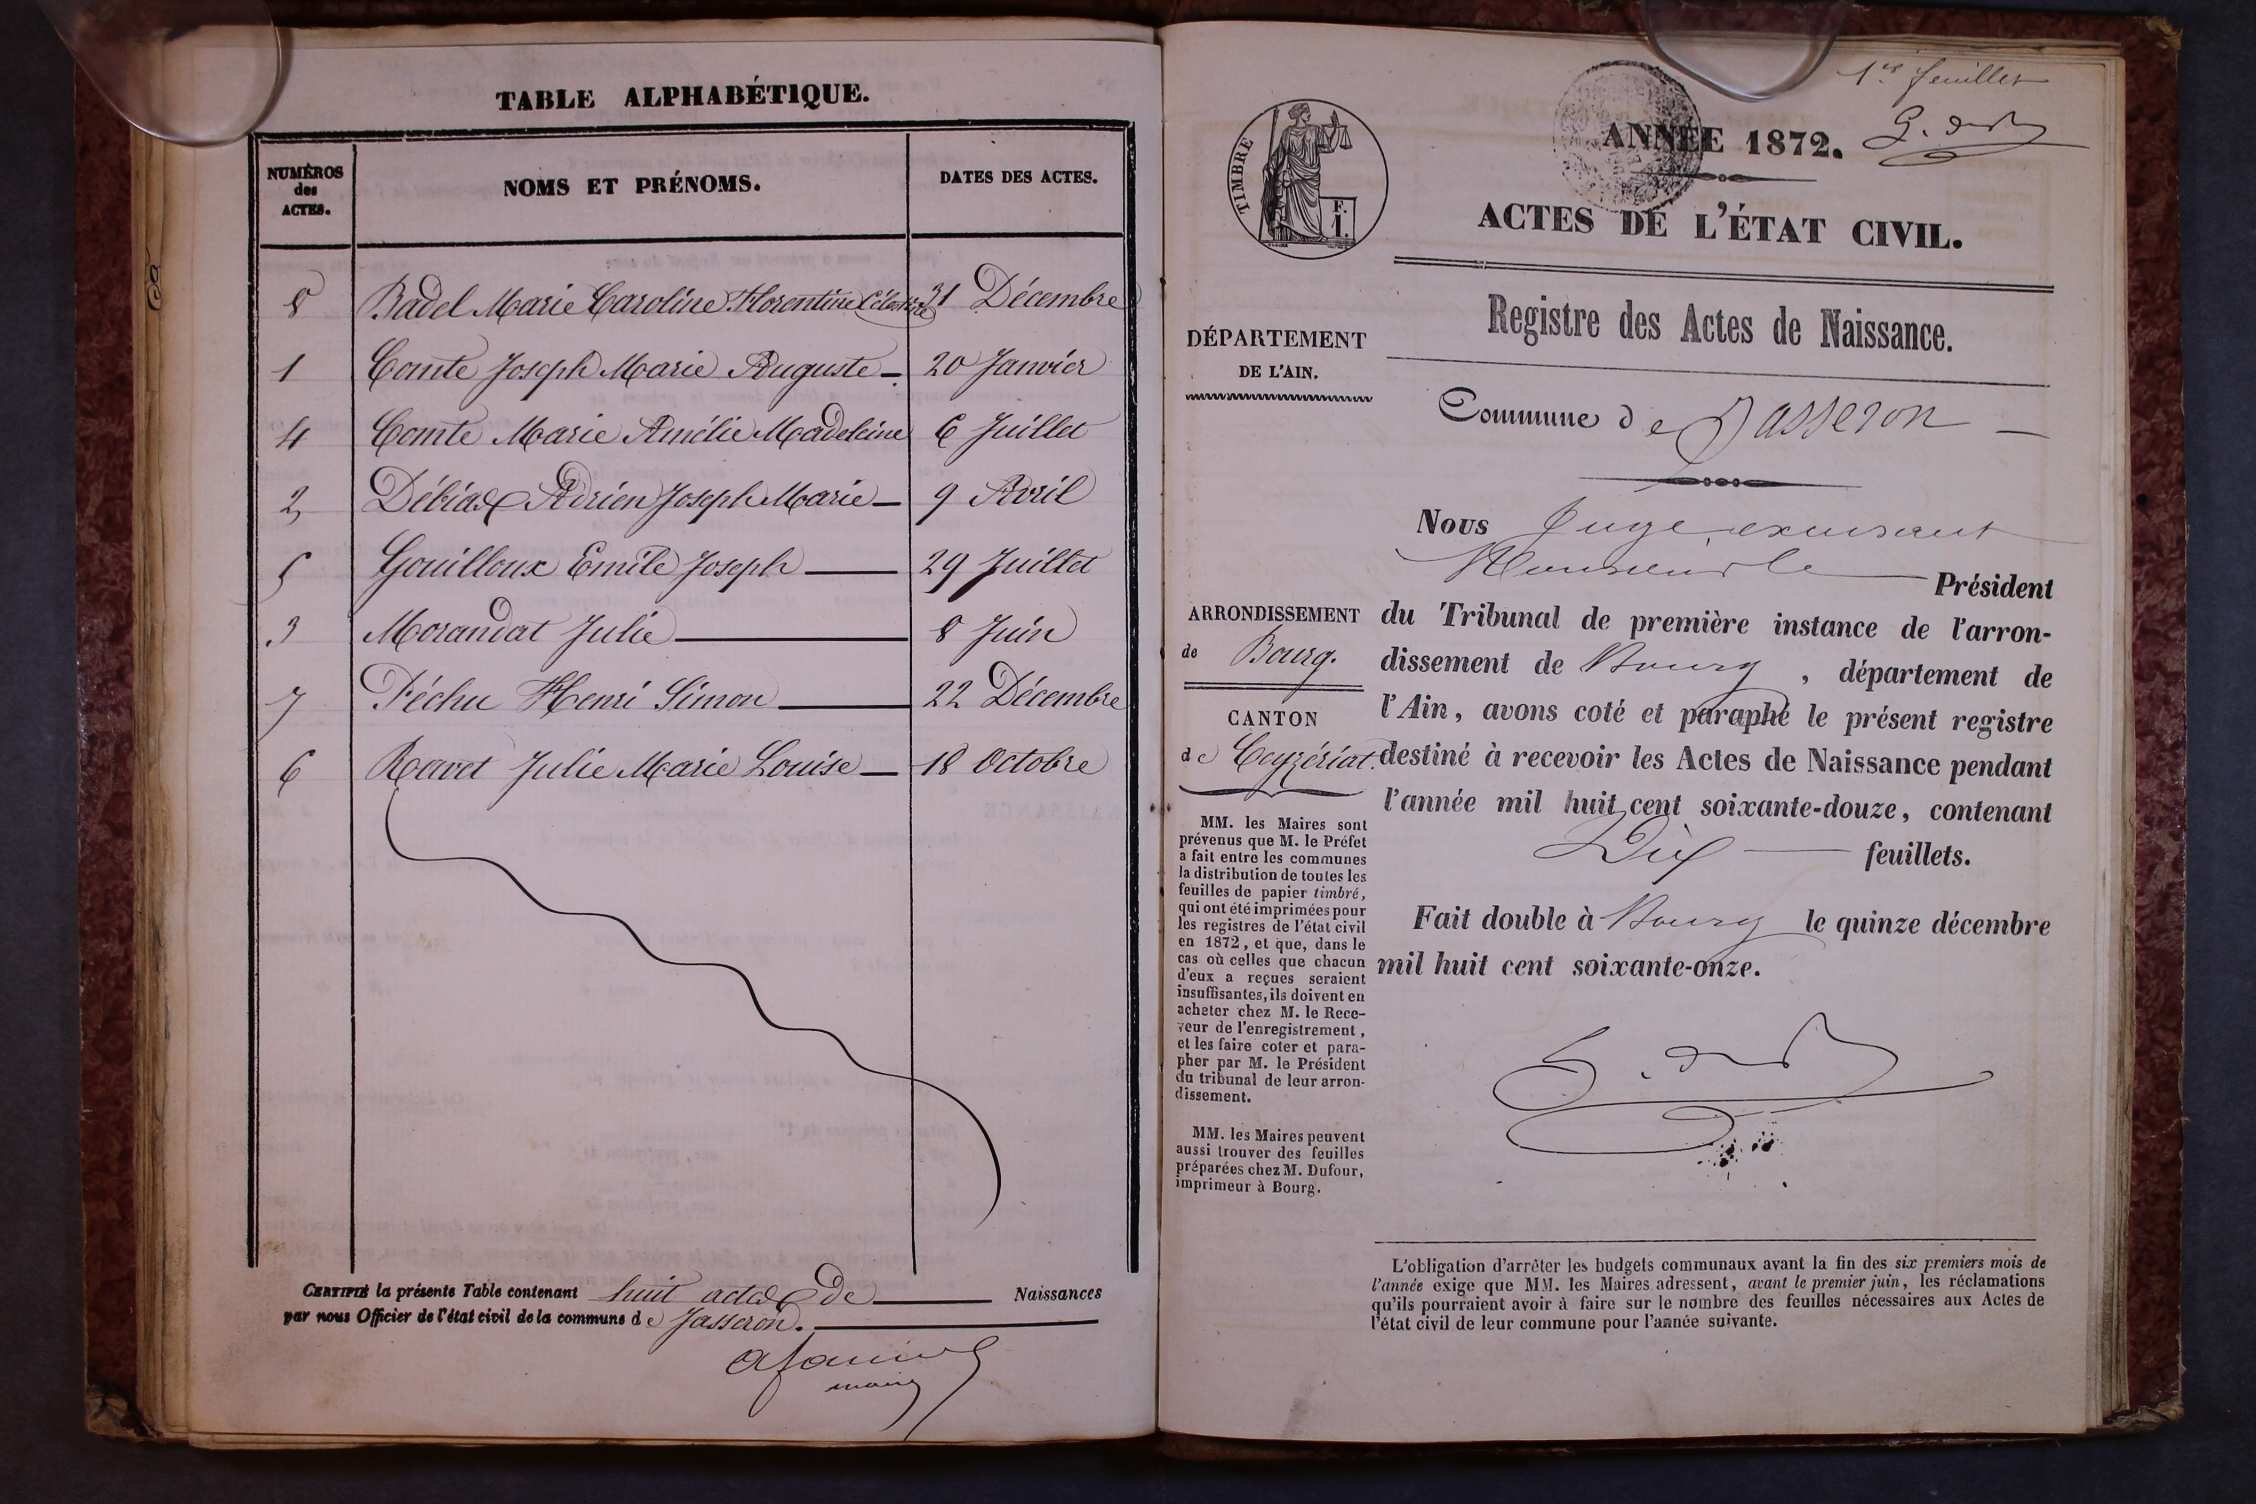 TABLE ALPHABÉTIQUE.
NUMÉROS des ACTES. NOMS ET PRÉNOMS. DATES DES ACTES.
8 Badel Marie Caroline Florentine Célestine 31 Décembre
1 Comte Joseph Marie Auguste 20 Janvier
4 Comte Marie Amélie Madeleine 6 Juillet
2 Débiax Adrien Joseph Marie 9 Avril
5 Gouilloux Emile Joseph 29 Juillet
3 Morandat Julie 8 Juin
7 Péchu Henri Simon 22 Décembre
6 Ravet Julie Marie Louise 18 Octobre
CERTIFIÉ la présente Table contenant huit actes de Naissances
par nous Officier de l'état civil de la commune de Jasseron.
maire
1er feuillet
TIMBRE
F.
1.
ANNÉE 1872.
ACTES DE L'ÉTAT CIVIL.
Registre des Actes de Naissance.
DÉPARTEMENT
DE L'AIN.
Commune de Jasseron
ARRONDISSEMENT
de Bourg.
CANTON
de Ceyzériat.
MM. les Maires sont
prévenus que M. le Préfet
a fait entre les communes
la distribution de toutes les
feuilles de papier timbré,
qui ont été imprimées pour
les registres de l'état civil
en 1872, et que, dans le
cas où celles que chacun
d'eux a reçues seraient
insuffisantes, ils doivent en
acheter chez M. le Rece-
veur de l'enregistrement,
et les faire coter et para-
pher par M. le Président
du tribunal de leur arron-
dissement.
MM. les Maires peuvent
aussi trouver des feuilles
préparées chez M. Dufour,
imprimeur à Bourg.
Nous Juge, excusant
Monsieur le Président
du Tribunal de première instance de l'arron-
dissement de Bourg, département de
l'Ain, avons coté et paraphé le présent registre
destiné à recevoir les Actes de Naissance pendant
l'année mil huit cent soixante-douze, contenant
Dix feuillets.
Fait double à Bourg le quinze décembre
mil huit cent soixante-onze.
L'obligation d'arrêter les budgets communaux avant la fin des six premiers mois de
l'année exige que MM. les Maires adressent, avant le premier juin, les réclamations
qu'ils pourraient avoir à faire sur le nombre des feuilles nécessaires aux Actes de
l'état civil de leur commune pour l'année suivante.